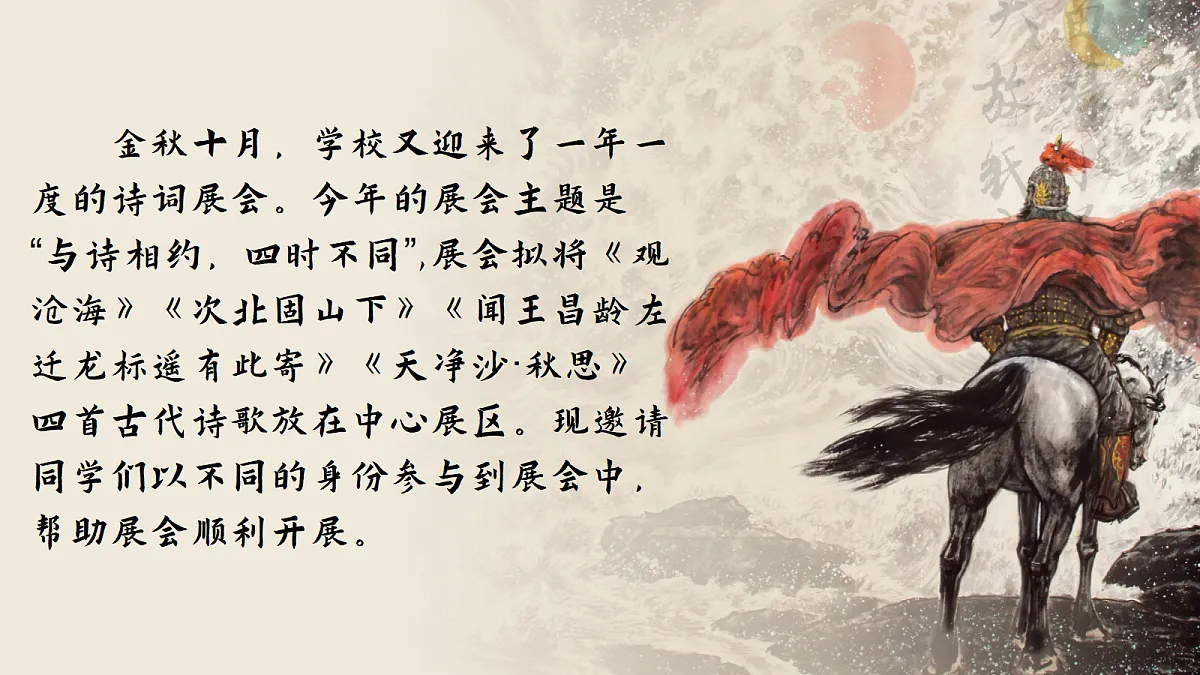 金秋十月，学校又迎来了一年一
度的诗词展会。今年的展会主题是
“与诗相约，四时不同”,展会拟将《观
沧海》《次北固山下》《闻王昌龄左
迁龙标遥有此寄》《天净沙·秋思》
四首古代诗歌放在中心展区。现邀请
同学们以不同的身份参与到展会中，
帮助展会顺利开展。